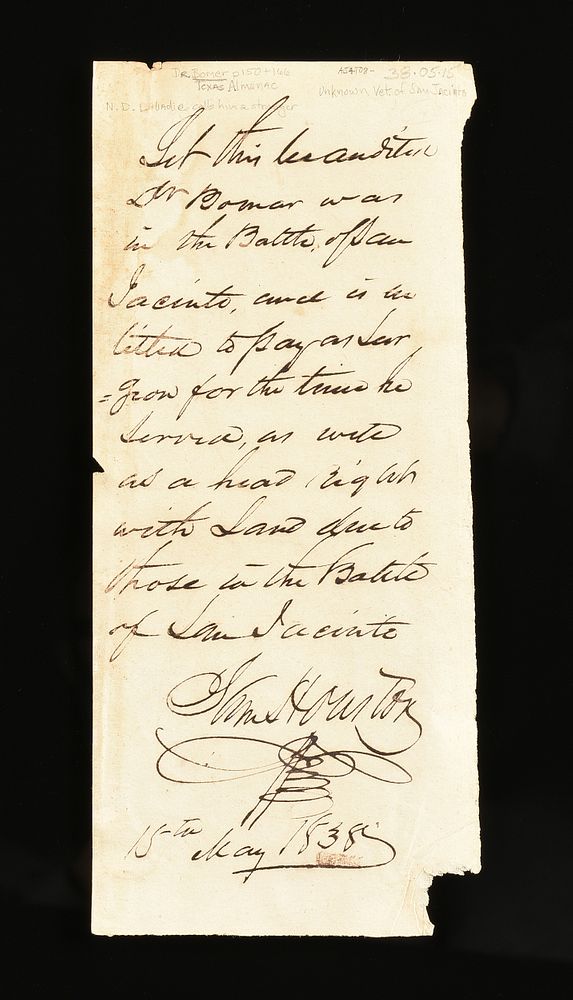 Dr. Bomer p150+166
Texas Almanac
N.D. Labadie calls him a stranger
38-05-15
Unknown Vet. of San Jacinto
Let this be audited
Dr Bomar was
in the Battle, of San
Jacinto, and is in
titled to pay as Sur
=geon for the time he
served, as well
as a head right
with Land due to
those in the Battle
of San Jacinto
Sam Houston
15th May 1838